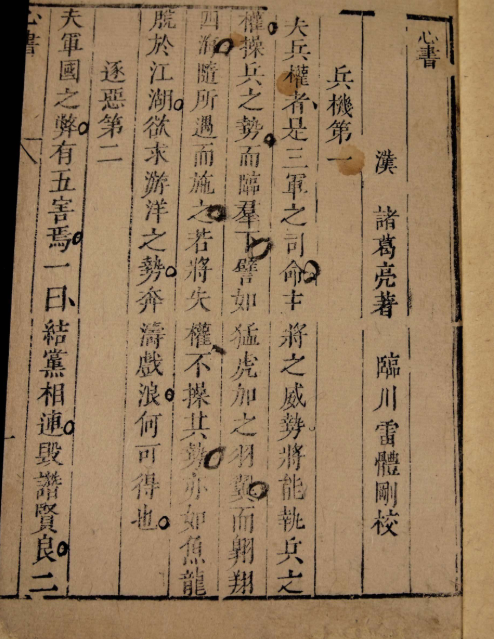 心書
漢 諸葛亮著 臨川雷體剛校
兵機第一
夫兵權者是三軍之司命主將之威勢將能執兵之
權操兵之勢而臨羣下譬如猛虎加之羽翼而翱翔
四海隨所遇而施之若將失權不操其勢亦如魚龍
脫於江湖欲求游洋之勢奔濤戲浪何可得也
逐惡第二
夫軍國之弊有五害焉一曰結黨相連毀譖賢良二
心書